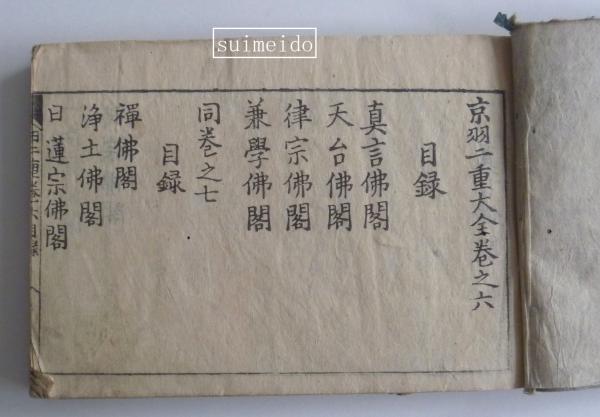 suimeido
京羽二重大全巻之六
目録
真言佛閣
天台佛閣
律宗佛閣
兼學佛閣
同巻之七
目録
禪佛閣
浄土佛閣
日蓮宗佛閣